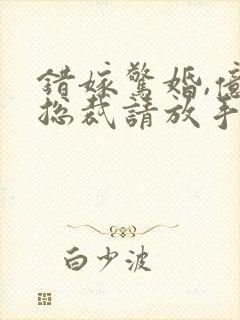 錯嫁驚婚,億
總裁請放手
白少波